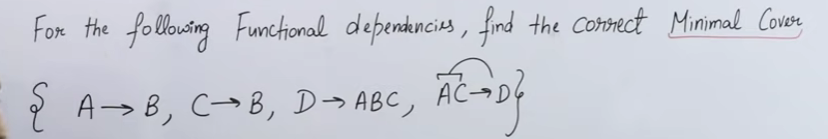 For the following Functional dependencies, find the correct Minimal Cover
{ A→B, C→B, D→ABC, AC→D}